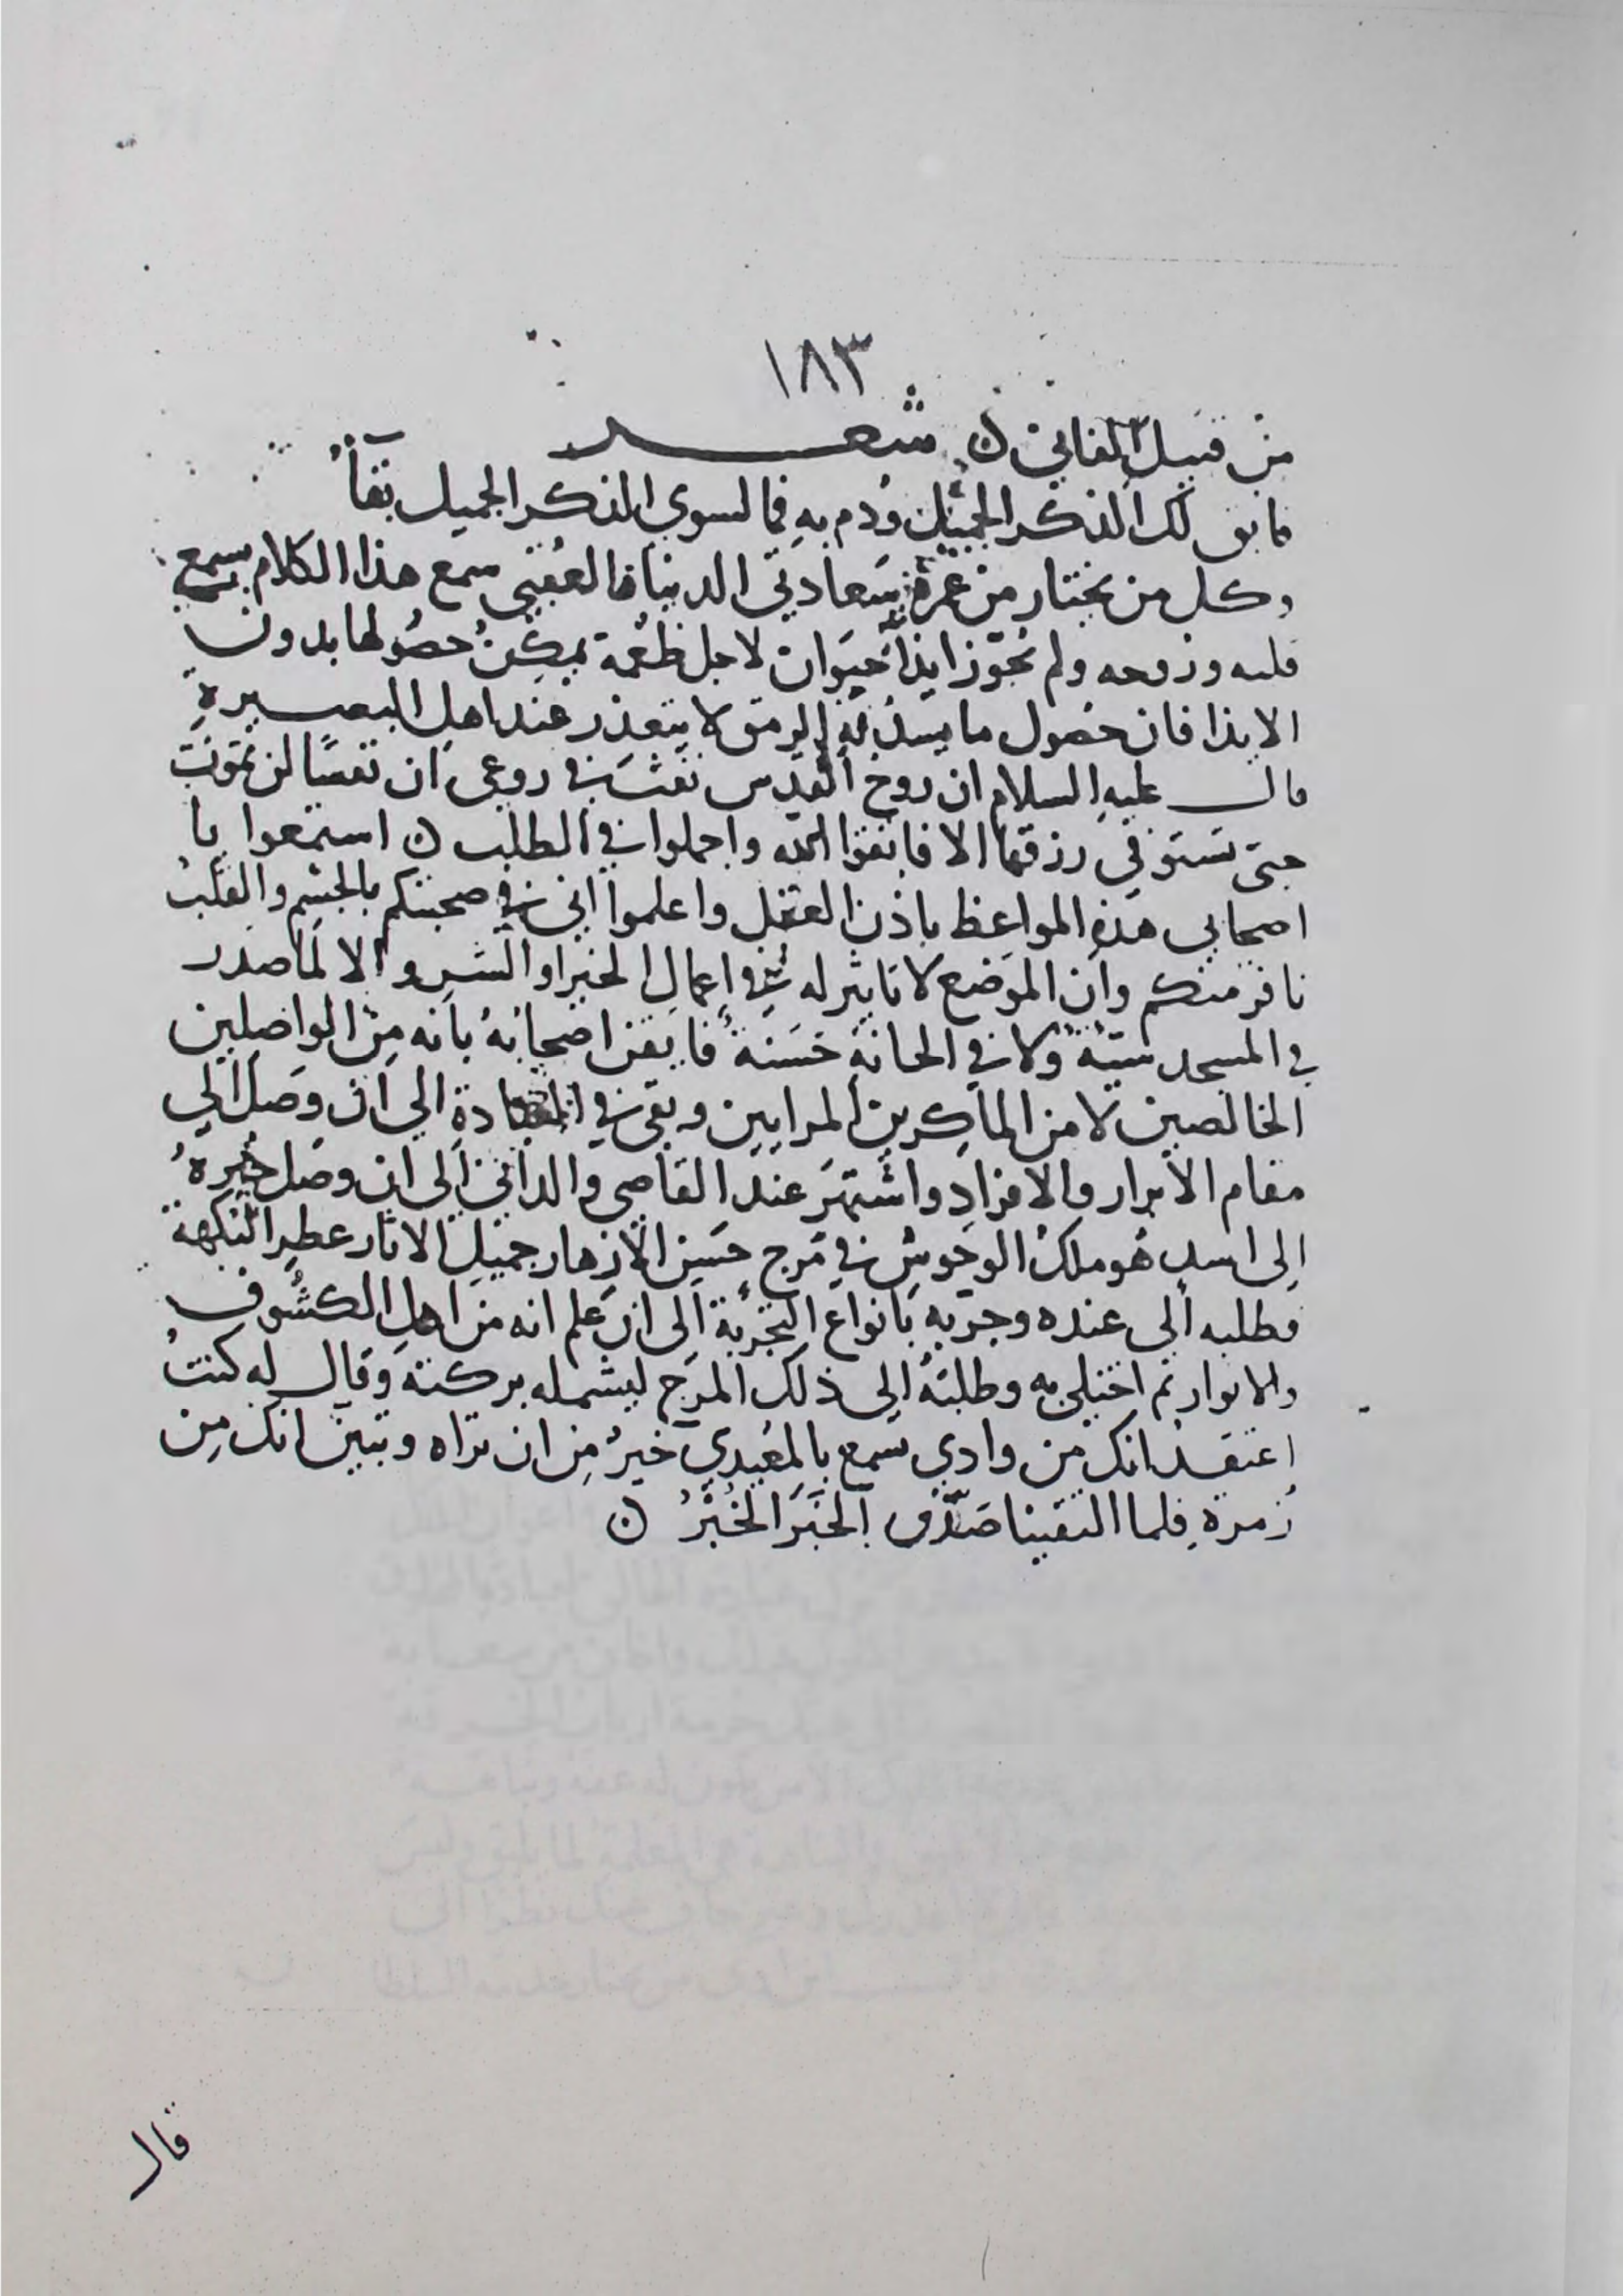 ١٨٣
من قبيل الفاني ن شعر
فابق لك الذكر الجميل ودم به فما لسوى الذكر الجميل بقآءُ
وكل من يختار من سعادتي الدنيا فالعقبي سمع هذا الكلام بسمع
قلبه وروحه ولم يجوز ايذآء حيوان لاجل طعمة يمكن حصولها بدون
الايذا فان حصول ما يسد به الرمق لا يتعذر عند اهل البصيرة
قال عليه السلام ان روح القدس نفث في روعي ان نفسًا لن تموت
حتى تستوفي رزقها الا فاتقوا الله واجملوا في الطلب ن استمعوا يا
اصحابي هذه المواعظ باذن العقل واعلموا اني في صحبتكم بالجسم والقلب
نافر منكم وان الموضع لا تاثير له في اعمال الخير او الشر والا لما صدر
في المسجد سيئة ولا في الحانة حسنة فايقن اصحابه بانه من الواصلين
الخالصين لا من الماكرين المرايين وبقي في الى ان وصل الي
مقام الابرار والافراد واشتهر عند القاصي والداني الى ان وصل خبره
الى اسد هو ملك الوحوش في مرج حسن الازهار جميل الاثار عطر النكهة
فطلبه الى عنده وجربه بانواع التجربة الى ان علم انه من اهل الكشوف
والانوار ثم اختلى به وطلبه الى ذلك المرج ليشمله بركته وقال له كنت
اعتقد انك من وادي تسمع بالمعيدي خير من ان تراه وتبين انك من
زمرة فلما التقينا صدق الخبر الخبر ن
قال